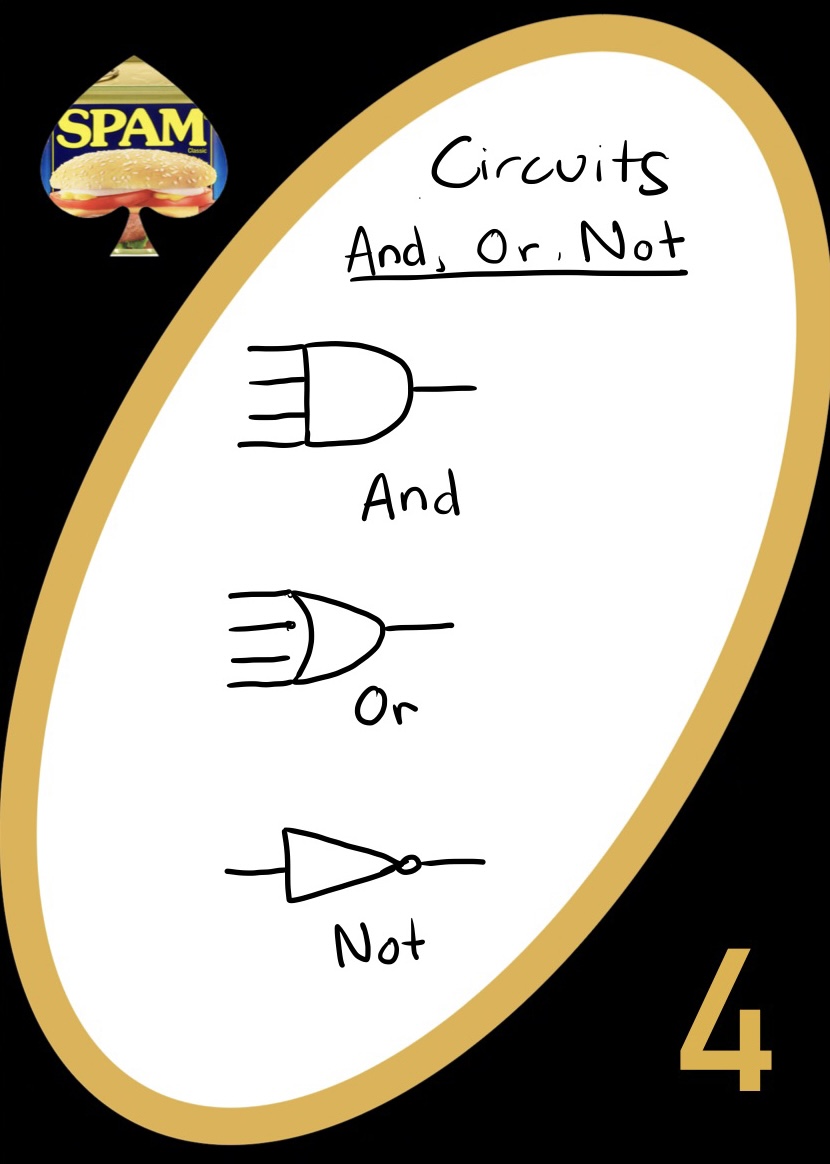 SPAM
Classic
Circuits
And, Or, Not
And
Or
Not
4